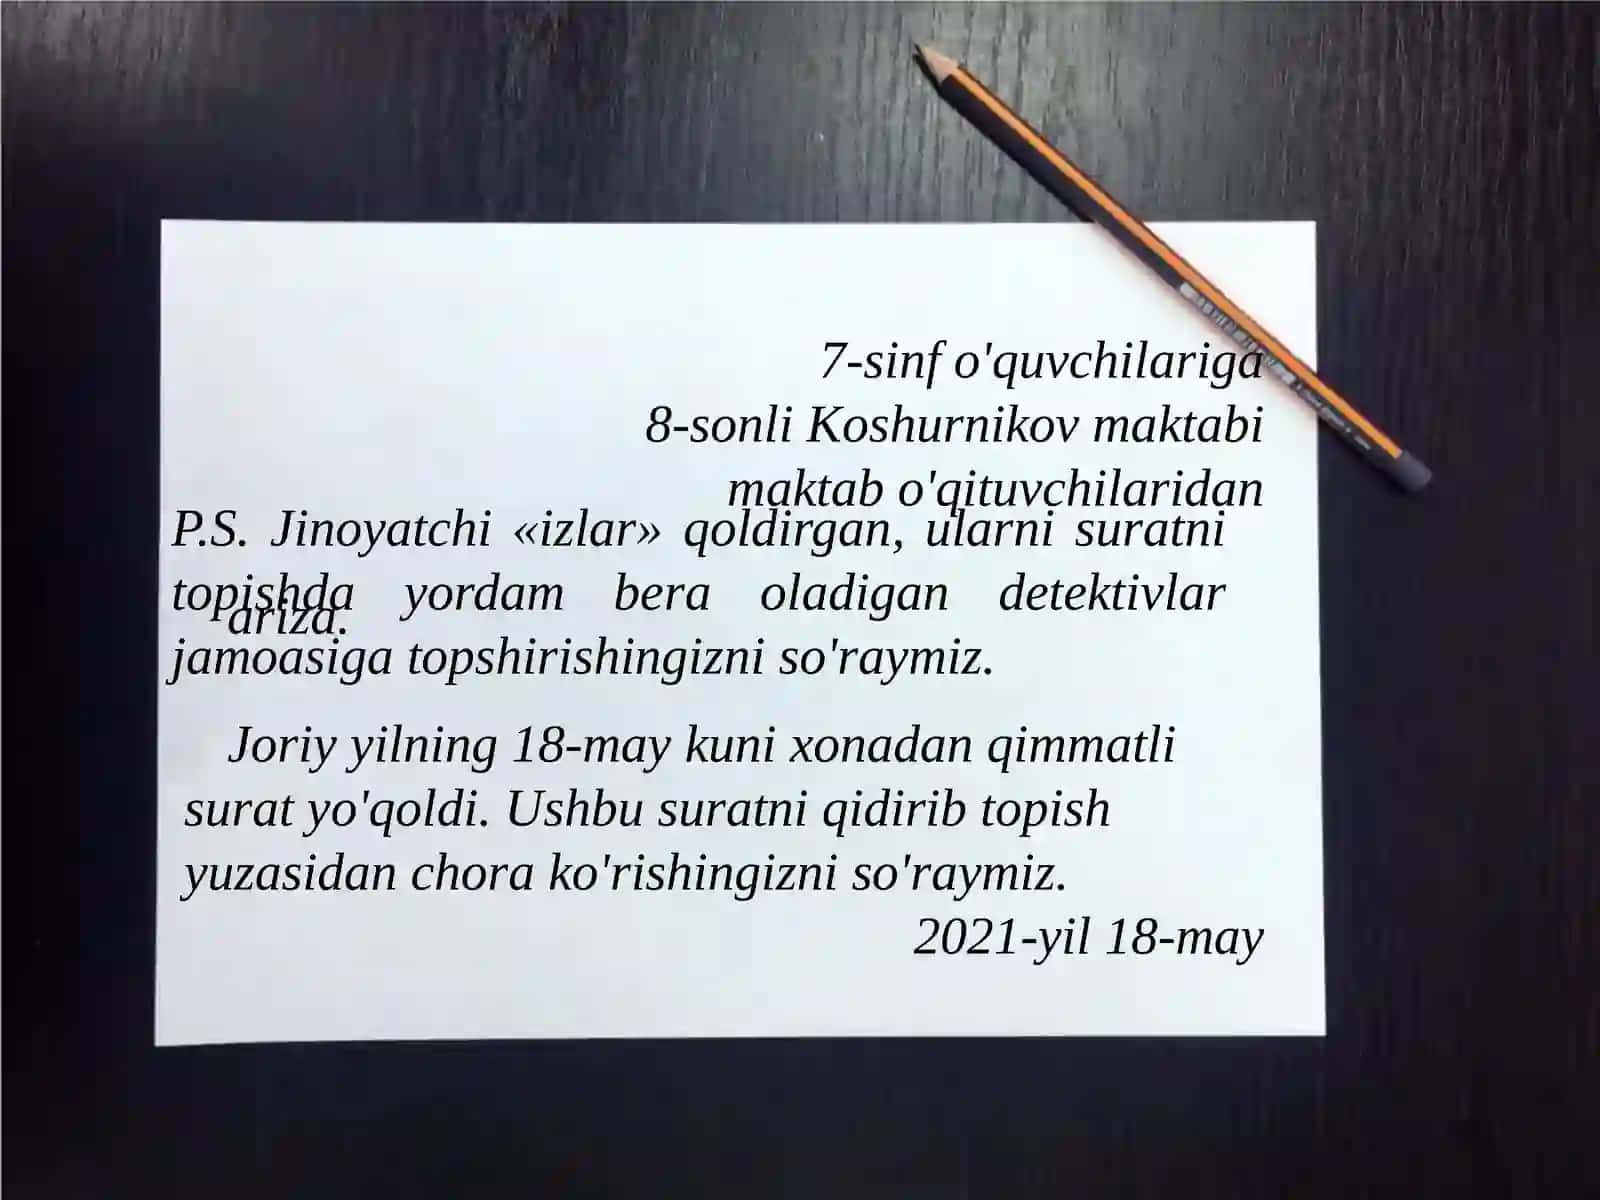 7-sinf o'quvchilariga
8-sonli Koshurnikov maktabi
maktab o'qituvchilaridan
P.S. Jinoyatchi «izlar» qoldirgan, ularni suratni
topishda yordam bera oladigan detektivlar
ariza.
jamoasiga topshirishingizni so'raymiz.
Joriy yilning 18-may kuni xonadan qimmatli
surat yo'qoldi. Ushbu suratni qidirib topish
yuzasidan chora ko'rishingizni so'raymiz.
2021-yil 18-may